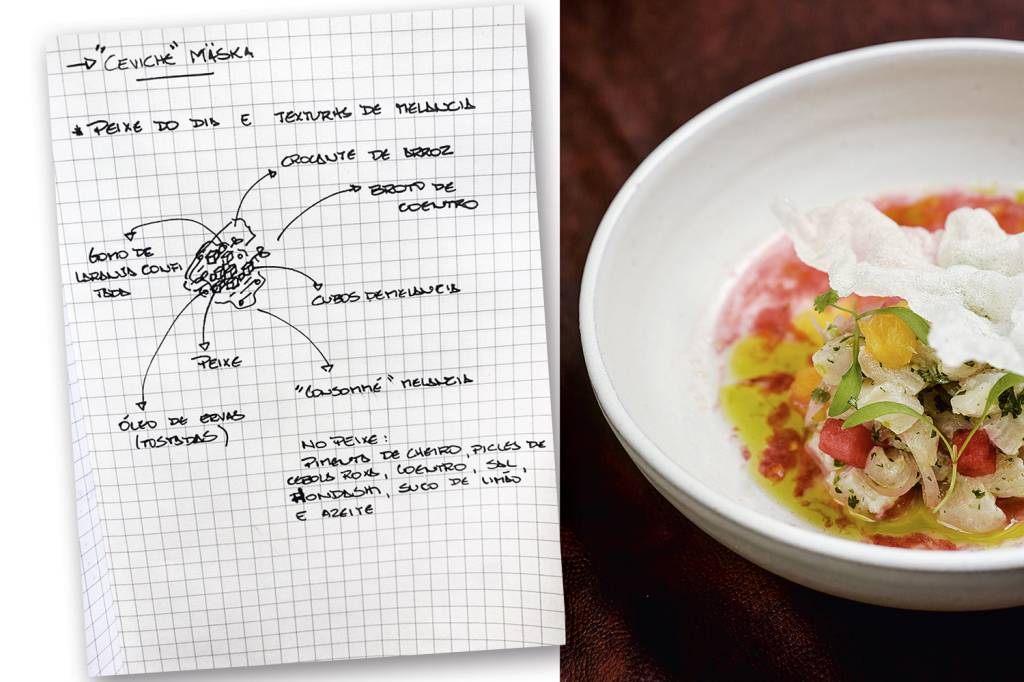 → "CEVICHE" MÄSKA
* PEIXE DO DIA E TEXTURAS DE MELANCIA
CROCANTE DE ARROZ
BROTO DE
COENTRO
GOMO DE
LARANJA CONFI
TADA
CUBOS DE MELANCIA
PEIXE
"CONSOMMÉ" MELANCIA
ÓLEO DE ERVAS
(TOSTADAS)
NO PEIXE:
PIMENTA DE CHEIRO, PICLES DE
CEBOLA ROXA, COENTRO, SAL,
HONDASHI, SUCO DE LIMÃO
E AZEITE